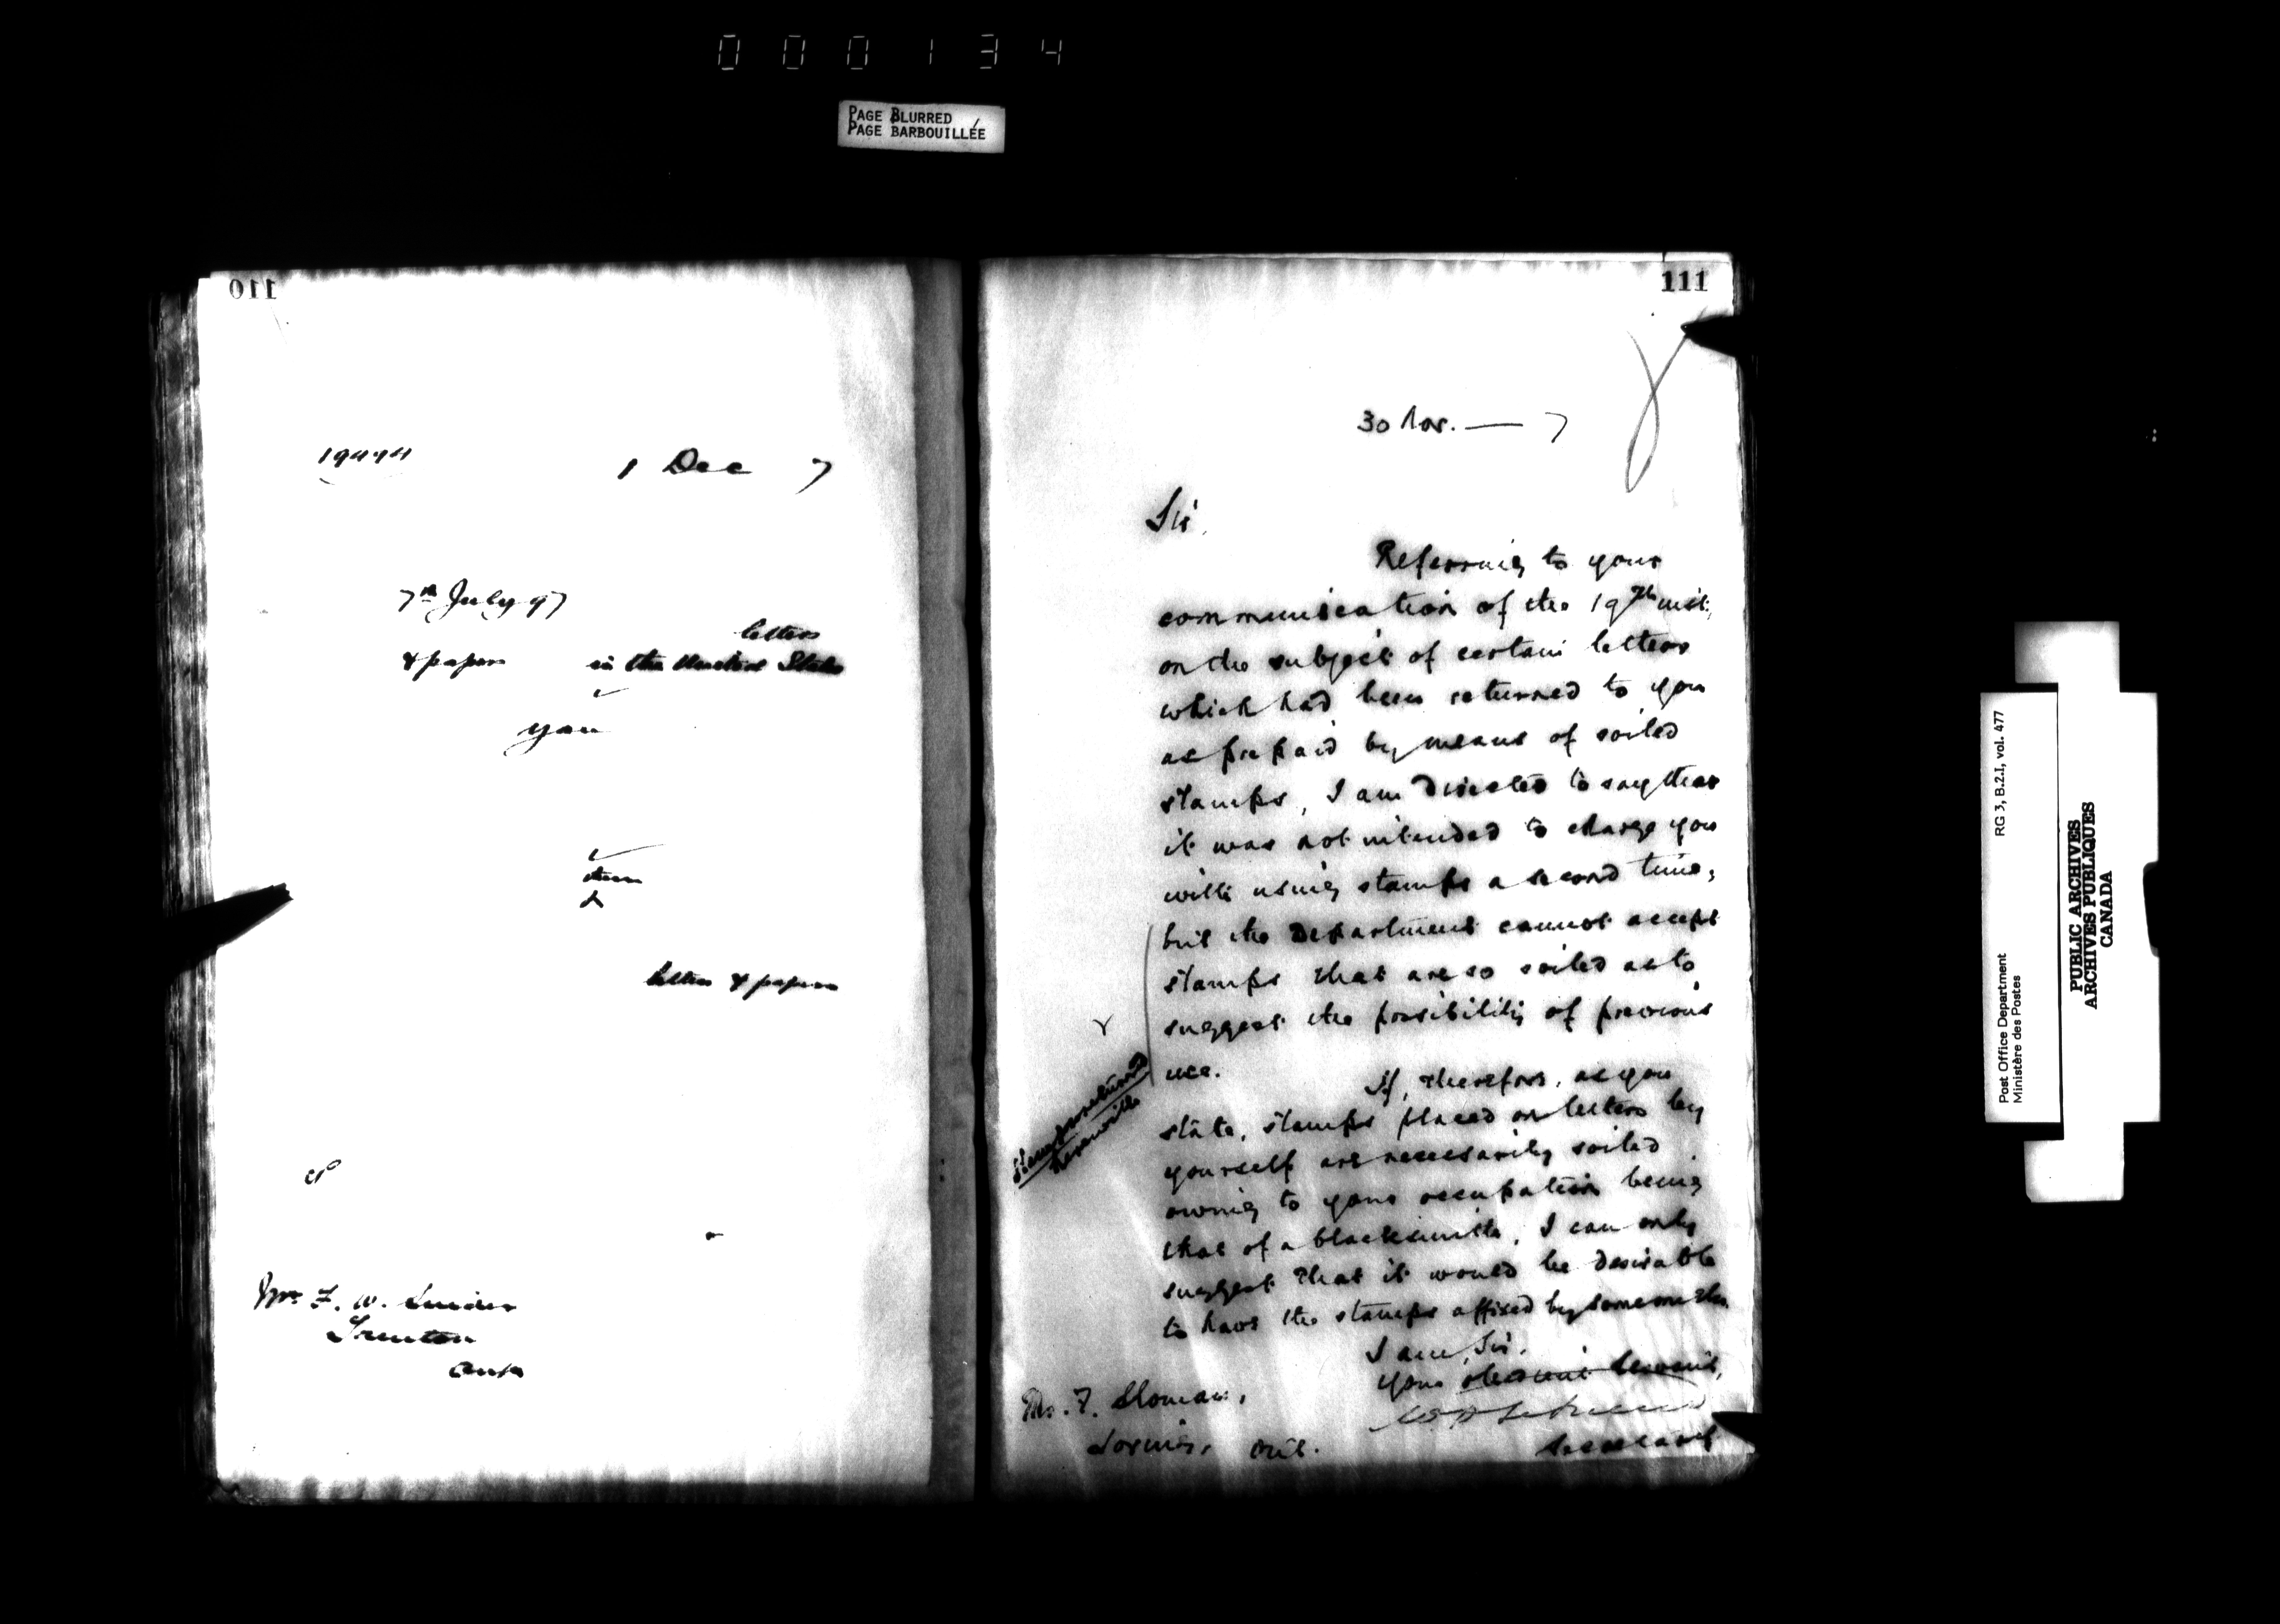 000134
PAGE BLURRED
PAGE BARBOUILLÉE
110
1 Dec 7
7th July 97
letters
& papers in the United States
you
them
&
letters & papers
Mr F. W.
Trenton
Ont
111
30 Nov. — 7
Sir,
Referring to your
communication of the 19th inst.,
on the subject of certain letters
which had been returned to you
as prepaid by means of soiled
stamps, I am directed to say that
it was not intended to charge you
with using stamps a second time;
but the Department cannot accept
stamps that are so soiled as to
suggest the possibility of previous
use.
If, therefore, as you
state, stamps placed on letters by
yourself are necessarily soiled
owing to your occupation being
that of a blacksmith, I can only
suggest that it would be desirable
to have the stamps affixed by someone else.
I am, Sir,
Your obedient Servant,
Secretary
Mr. F. Sloman,
Sarnia, Ont.
Post Office Department RG 3, B.2.I, vol. 477
Ministère des Postes
PUBLIC ARCHIVES
ARCHIVES PUBLIQUES
CANADA